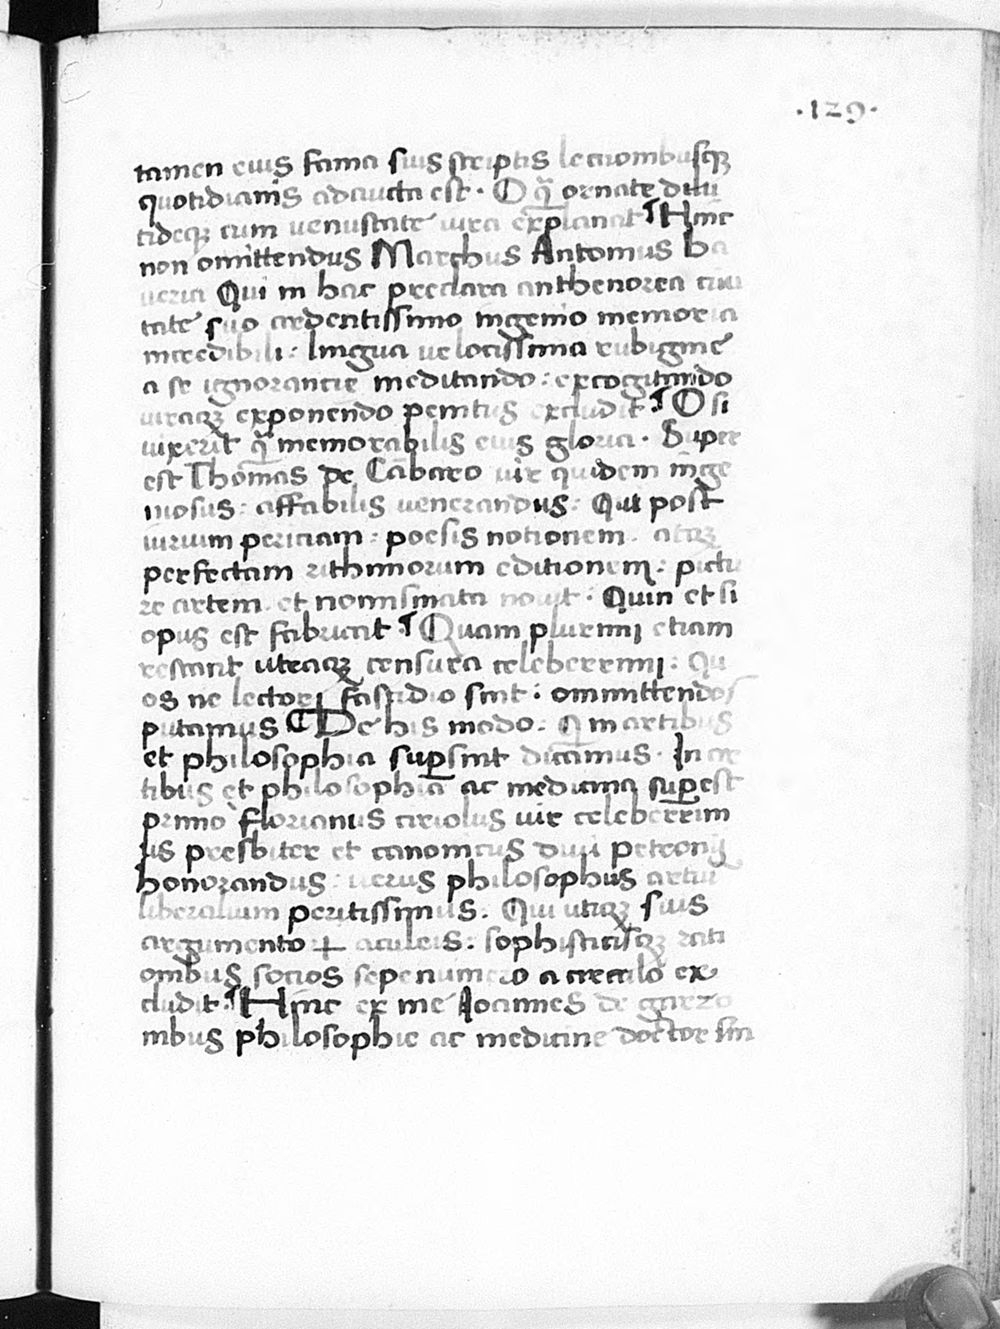 ·129·
tamen eius fama suis scriptis lectionibusqꝫ
quotidianis adaucta est · O q̃ ornate dilu
cideqꝫ cum uenustate iura explanat ¶ Hinc
non omittendus Marchus Antonius Ba
ueria Qui in hac preclara anthenorea ciui
tate suo ardentissimo ingenio memoria
incredibili : lingua uelocissima rubigine
a se ignorantie meditando : excogitando
utraqꝫ exponendo penitus excludit ¶ O si
uixerit q̃ memorabilis eius gloria · Super
est Thomas de Cãbaro uir quidem inge
niosus : affabilis uenerandus : Qui post
iurium periciam : poesis notionem · atqꝫ
perfectam rithmorum editionem : pictu
re artem et nomismata nouit · Quin et si
opus est fabricat ¶ Quam plurimi etiam
restant utraqꝫ censura celeberrimi : Qu
os ne lectori fastidio sint : ommittendos
putamus ¶ De his modo : q̃ in artibus
et philosophia supersint dicamus · In ar
tibus et philosophia ac medicina superest
primo florianus ceriolus uir celeberrim
us presbiter et canonicus diui petronij
honorandus : uerus philosophus artiu
liberalium peritissimus : Qui utiqꝫ suis
argumento⁊ aculeis : sophisticisqꝫ rati
onibus socios sepenumero a circulo ex
cludit ¶ Hinc ex me Ioannes de
nibus philosophie ac medicine doctor sin